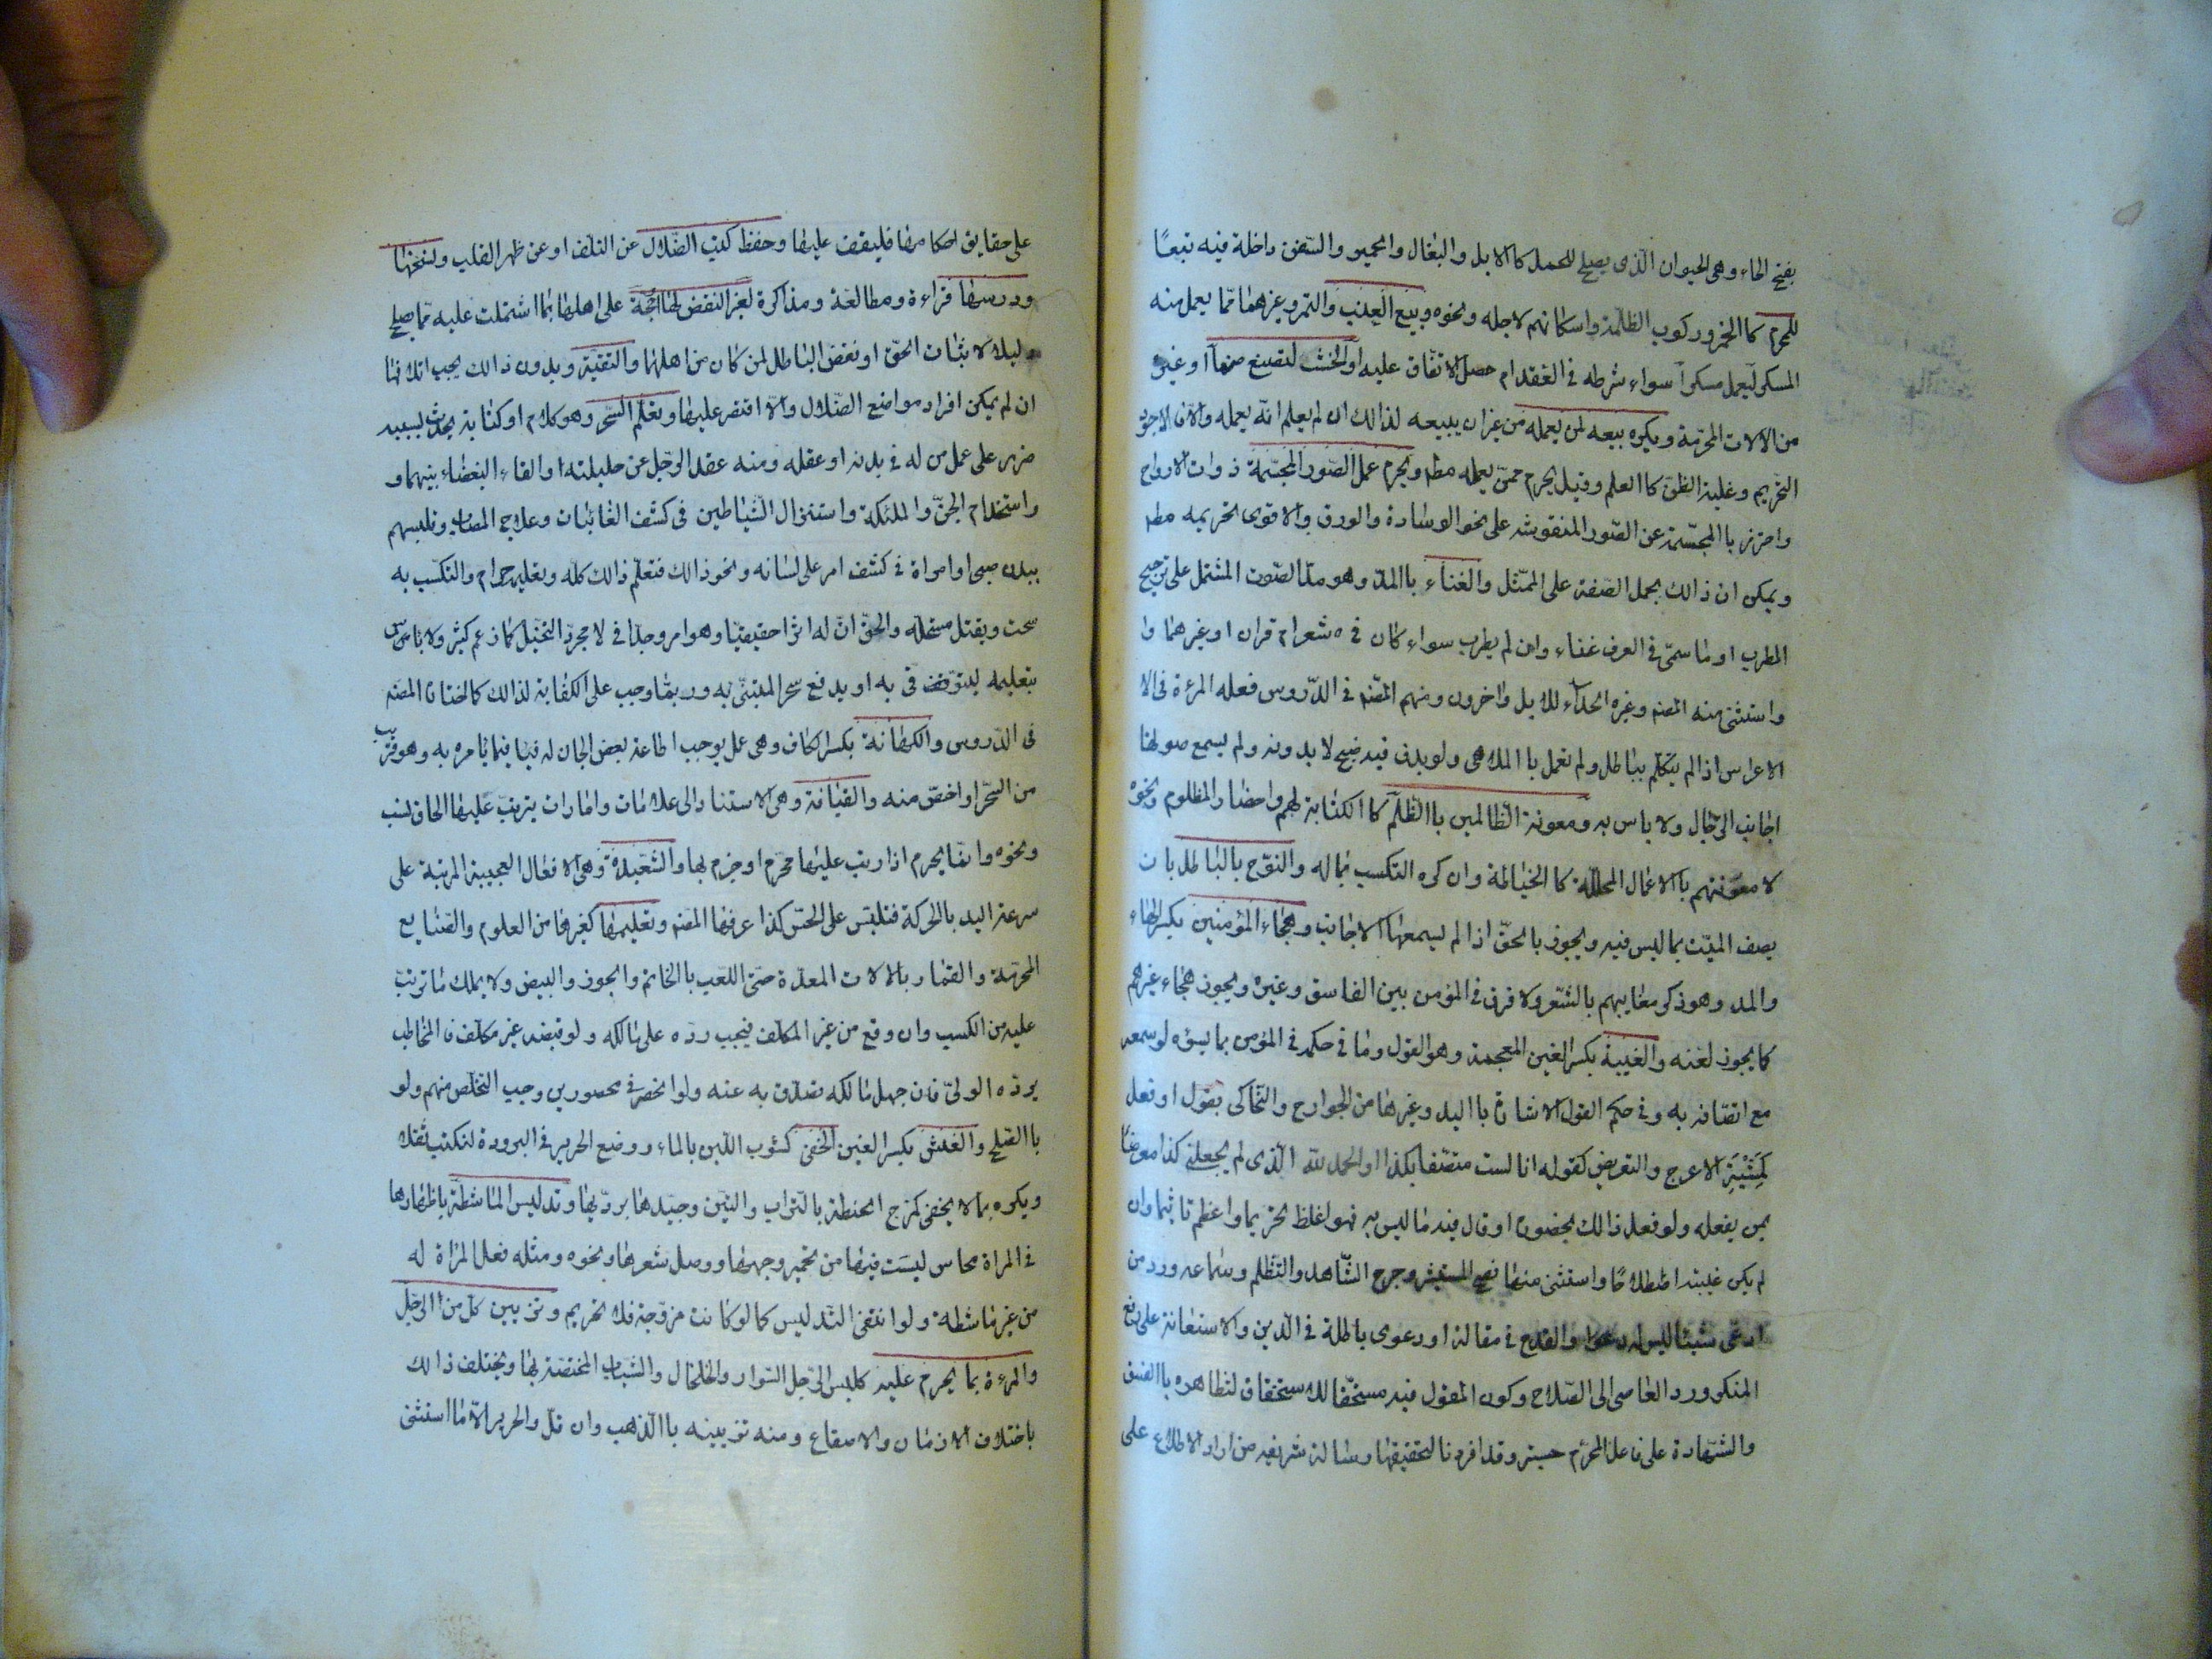 بفتح الحاء وهى الحيوان الذى يصلح للحمل كالابل والبغال والحمير والسفن داخلة فيه تبعًا
للمحرم كالخمر وركوب الظلمة واسكانهم لاجله ونحوه وبيع العنب والتمر وغيرهما مما يعمل منه
المسكر ليعمل مسكرا سواء شرطه فى العقد ام حصل الاتفاق عليه او الخشب ليصنع صنما او غيره
من الالات المحرمة ويكره بيعه لمن يعمله من غير ان يبيعه لذالك ان لم يعلم انه يعمله والا فالاجود
التحريم وغلبة الظن كاالعلم وقيل يحرم ممن يعمله مطه ويحرم عمل الصور المجسمة ذوات الارواح
واحترز باالمجسمة عن الصور المنقوشه على نحو الوسادة والورق والاقوى تحريمه مطه
ويمكن ان ذالك بحمل الصفة على الممثل والغناء باالمد وهو مد الصوت المشتمل على ترجيح
المطرب او ما سمى فى العرف غناء وان لم يطرب سواء كان فى شعر ام قران او غيرهما وا
واستثنى منه المصنه وغيره الحداء للابل واخرون ومنهم المصنه فى الدروس فعله المرءة فى الا
الاعراس اذا لم يتكلم بباطل ولم تعمل باالملاهى ولو بدف فيه ضبح لا بدونه ولم يسمع صوتها
اجانب الرجال ولا باس به ومعونة الظالمين باالظلم كاالكتابة لهم واحضار المظلوم ونحوه
لا معونتهم باالاعمال المحللة كاالخياطة وان كره التكسب بماله والنوح بالباطل بان
يصف الميت بما ليس فيه ويجوز بالحق اذا لم يسمعها الاجانب وهجاء المؤمنين بكسر الهاء
والمد وهو ذكر معايبهم بالشعر ولا فرق فى المؤمن بين الفاسق وغيره ويجوز هجاء غيرهم
كما يجوز لعنه والغيبة بكسر الغين المعجمة وهو القول وما فى حكمه فى المؤمن بما يسؤه لو سمعه
مع اتصافه به وفى حكم القول الاشارة باليد وغيرها من الجوارح والتحاكى بقول او فعل
كَمِشْيَةِ الاعرج والتعريض كقوله انا لست متصفا بكذا او الحمد لله الذى لم يجعلنى كذا معرضًا
بمن يفعله ولو فعل ذالك بحضوره او قال فيه ما ليس به فهو اغلظ تحريما واعظم تاثيما وان
لم يكن غيبته اصطلاحًا واستثنى منها نصح المستشير وجرح الشاهد والتظلم وسماعه ورد من
ادعى نسبا ليس له والقدح فى مقالة او دعوى باطلة فى الدين والاستعانة على دفع
المنكر ورد العاصى الى الصلاح وكون المقول فيه مستحقا للاستخفاف لتظاهره باالفسق
والشهادة على فاعل المحرم حسبة وقد افردنا لتحقيقها رسالة شريفه من اراد الاطلاع على
على حقايق احكامها فليقف عليها وحفظ كتب الضلال عن التلف او عن ظهر القلب ونسخها
ودرسها قراءة ومطالعة ومذاكرة لغير النقض لها او الحجة على اهلها بما اشتملت عليه مما يصلح
دليلا لاثبات الحق او نقض الباطل لمن كان من اهلها والتقية وبدون ذالك يجب اتلافها
ان لم يمكن افراد مواضع الضلال والا اقتصر عليها وتعلم السحر وهو كلام او كتابة يحدث بسببه
ضرر على عمل من له فى بدنه او عقله ومنه عقد الرجل عن حليلته او القاء البغضاء بينهما و
واستخدام الجن والملئكة واستنزال الشياطين فى كشف الغائبات وعلاج المصاب وتلبسهم
ببدن صبى او امراة فى كشف امر على لسانه ونحو ذالك فتعلم ذالك كله وتعليمه حرام والتكسب به
سحت ويقتل مستحله والحق ان له اثرا حقيقيا وهو امر وجدانى لا مجرد التخيل كما زعم كثير ولا باس
بتعليمه ليتوقى به او يدفع سحر المتنبى به وربما وجب على الكفاية لذالك كما اختاره المصنه
فى الدروس والكهانة بكسر الكاف وهى عمل يوجب اطاعة بعض الجان له فيما يامره به وهو قريب
من السحر او اخص منه والقيافة وهى الاستناد الى علامات وامارات يترتب عليها الحاق نسب
ونحوه وانما يحرم اذا رتب عليها محرم او جزم بها والشعبدة وهى الافعال العجيبة المرتبة على
سرعة اليد بالحركة فتلبس على الحس كذا عرفها المصنه وتعليمها كغيرها من العلوم والصنايع
المحرمة والقمار بالالات المعدة حتى اللعب بالخاتم والجوز والبيض ولا يملك ما ترتب
عليه من الكسب وان وقع من غير المكلف فيجب رده على مالكه ولو قبضه غير مكلف فالمخاطب
برده الولى فان جهل مالكه تصدق به عنه ولو انحصر فى محصورين وجب التخلص منهم ولو
باالصلح والغش بكسر الغين الخفى كشوب اللبن بالماء ووضع الحرير فى البرودة لتكتسب ثقلا
ويكره بما لا يخفى كمزج الحنطة بالتراب والتبن وجيدها برديها وتدليس الماشطة باظهارها
فى المراة محاسن ليست فيها من تحمير وجهها ووصل شعرها ونحوه ومثله فعل المراة له
من غير ماشطة ولو انتفى التدليس كما لو كانت مزوجة فلا تحريم وتزيين كل من الرجل
والمرءة بما يحرم عليه كلبس الرجل السوار والخلخال والثياب المختصة بها ويختلف ذالك
باختلاف الازمان والاصقاع ومنه تزيينه باالذهب وان قل والحرير الا ما استثنى